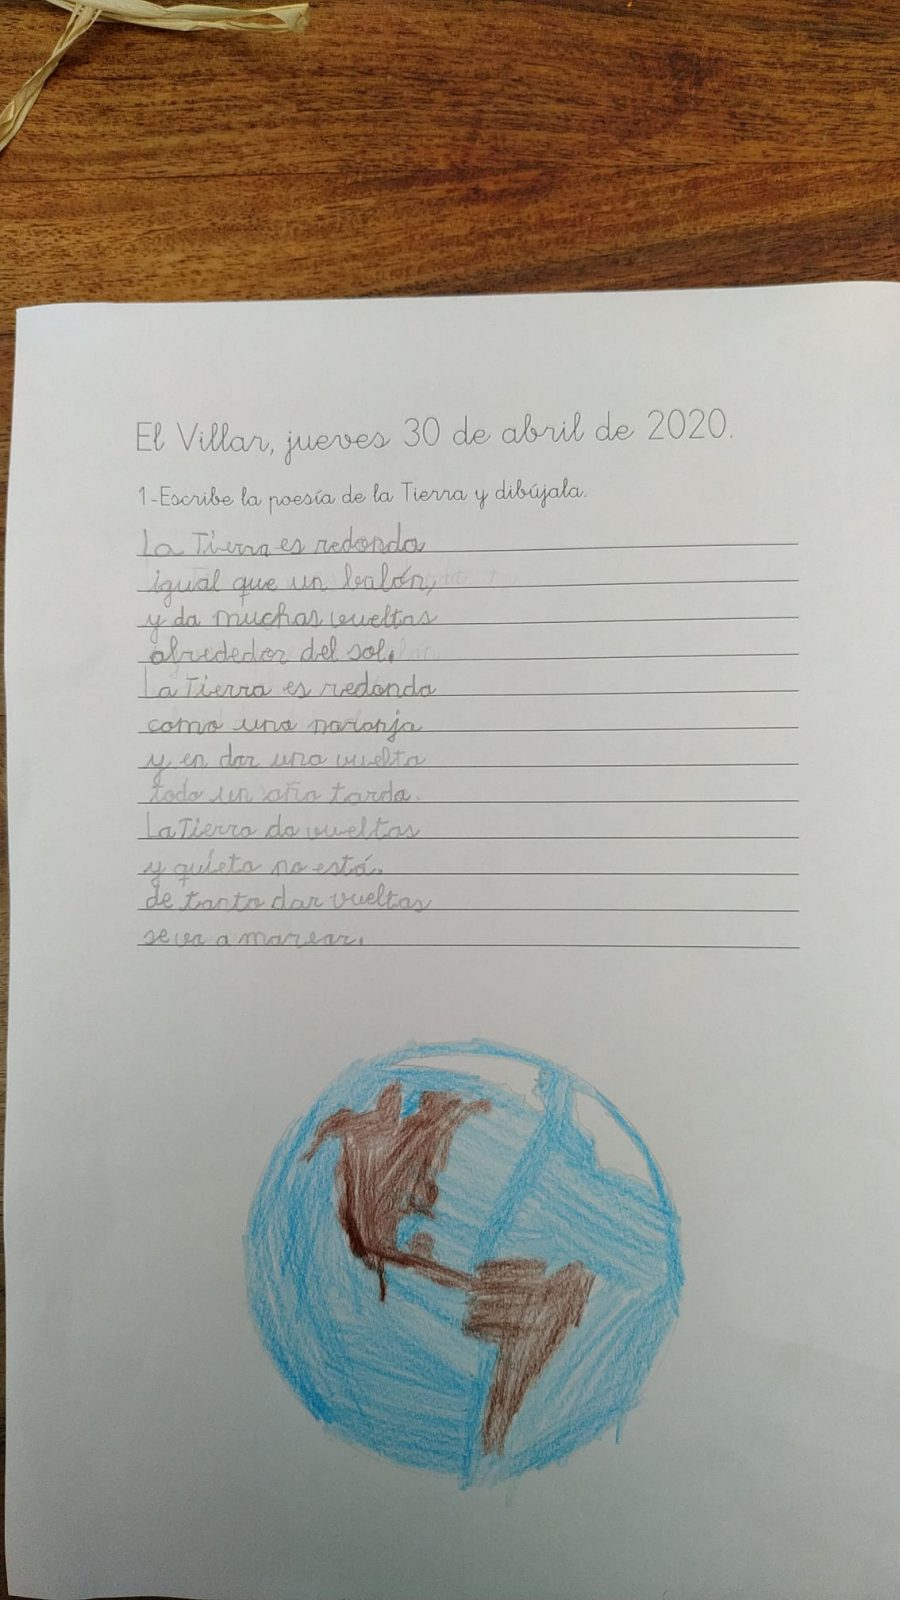 El Villar, jueves 30 de abril de 2020.
1-Escribe la poesía de la Tierra y dibújala.
La Tierra es redonda
igual que un balón,
y da muchas vueltas
alrededor del sol.
La Tierra es redonda
como una naranja
y en dar una vuelta
todo un año tarda.
La Tierra da vueltas
y quieta no está.
de tanto dar vueltas
se va a marear.